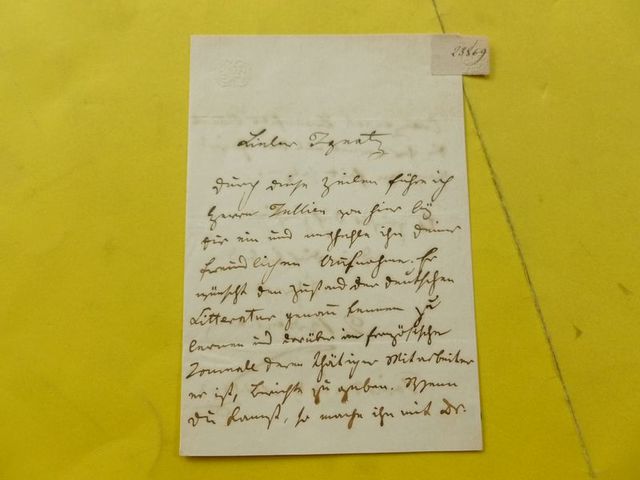 23869
Lieber Ignatz
durch diese Zeilen führe ich
Herrn Jullien von hier bei
dir ein und empfehle ihn deiner
freundlichen Aufnahme. Er
wünscht den Zustand der deutschen
Litteratur genau kennen zu
lernen und darüber im französische
Journale deren thätiger Mitarbeiter
er ist, Berichte zu geben. Wenn
du kannst, so mache ihn mit Dr.